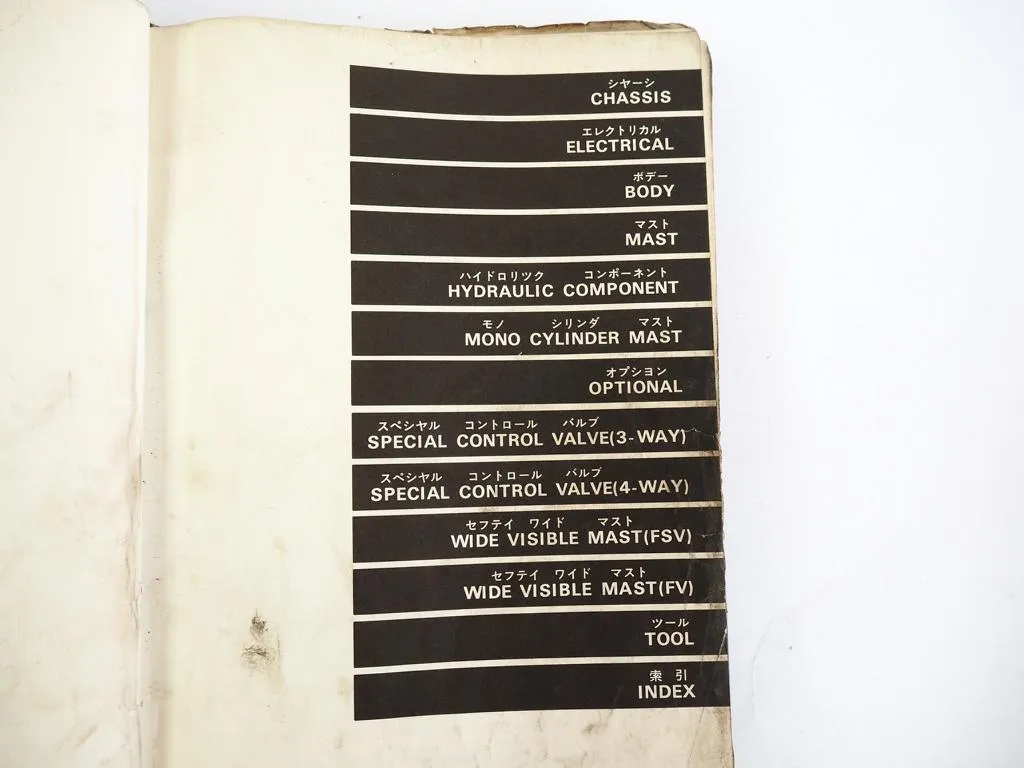 シヤーシ
CHASSIS
エレクトリカル
ELECTRICAL
ボデー
BODY
マスト
MAST
ハイドロリツク コンポーネント
HYDRAULIC COMPONENT
モノ シリンダ マスト
MONO CYLINDER MAST
オプション
OPTIONAL
スペシヤル コントロール バルブ
SPECIAL CONTROL VALVE(3-WAY)
スペシヤル コントロール バルブ
SPECIAL CONTROL VALVE(4-WAY)
セフテイ ワイド マスト
WIDE VISIBLE MAST(FSV)
セフテイ ワイド マスト
WIDE VISIBLE MAST(FV)
ツール
TOOL
索引
INDEX